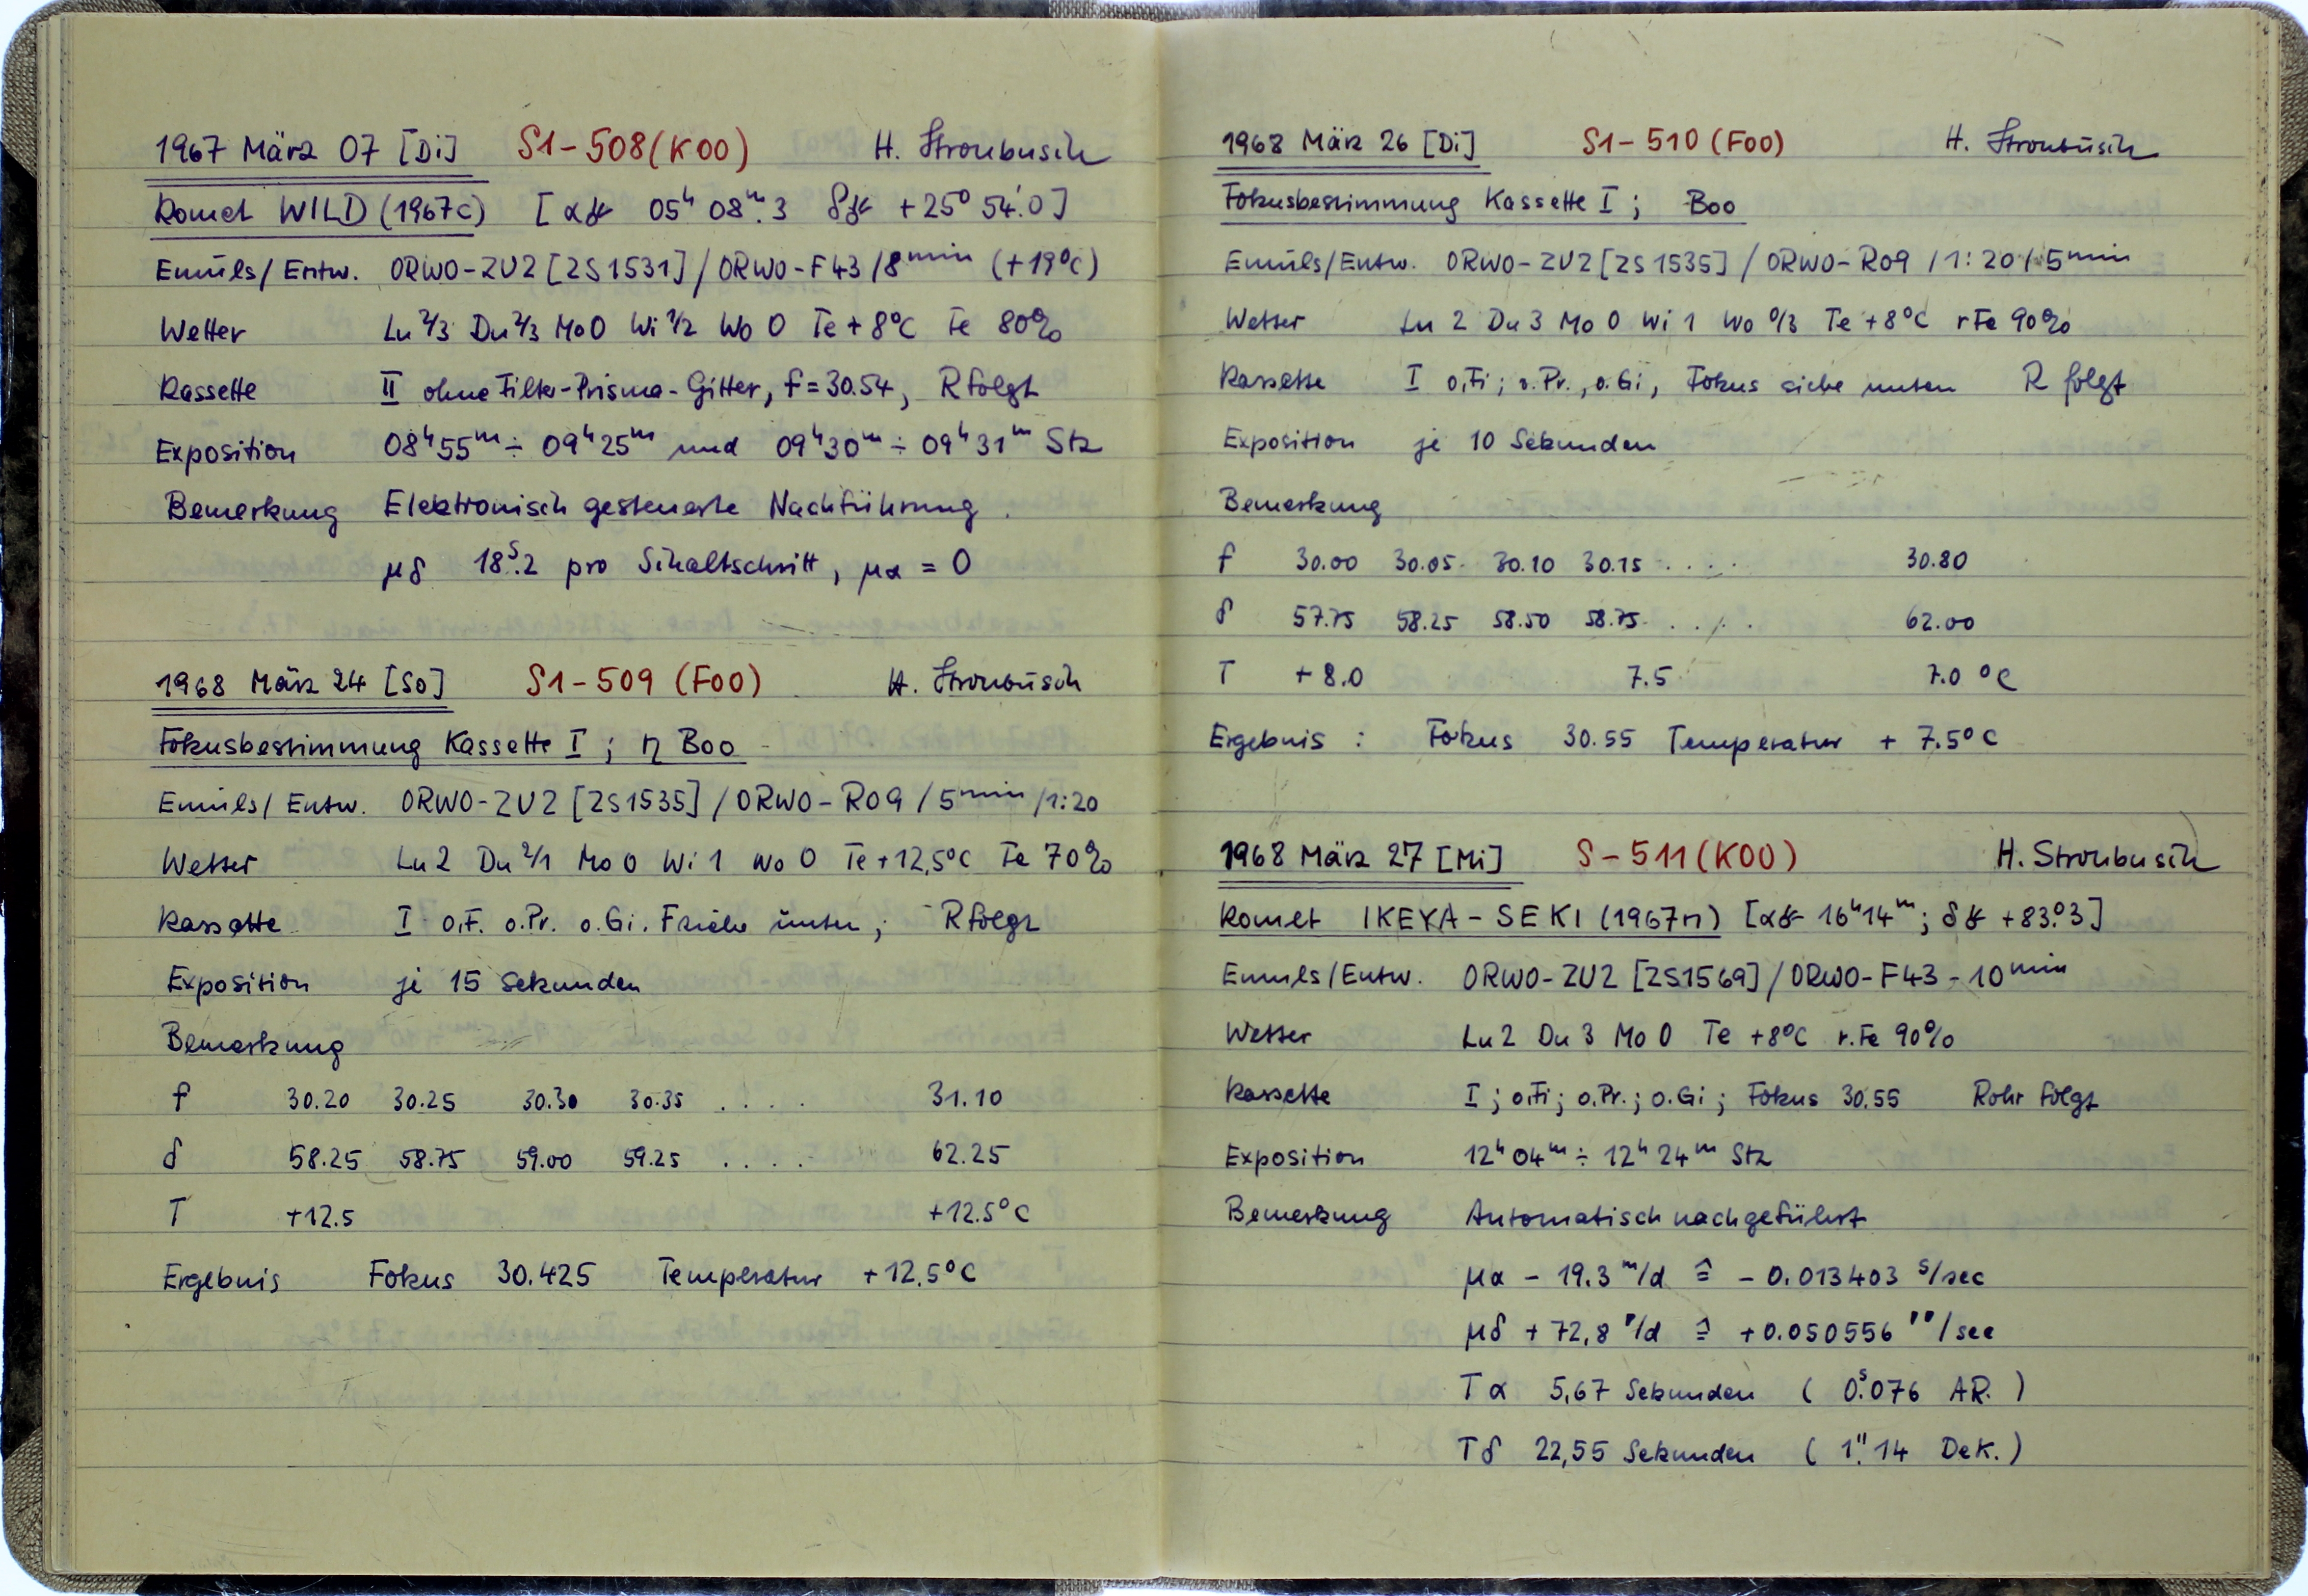 1967 März 07 [Di] S1-508 (K00) H. Stronbusch
Komet WILD (1967c) [α 05ʰ 08ᵐ.3 δ +25° 54.'0]
Emuls/Entw. ORWO-ZU2 [ZS1531] / ORWO-F43 / 8 min (+19°C)
Wetter Lu 2/3 Du 2/3 Mo 0 Wi 1/2 Wo 0 Te +8°C Fe 80%
Kassette II ohne Filter-Prisma-Gitter, f=30.54, R folgt
Exposition 08ʰ55ᵐ ÷ 09ʰ25ᵐ und 09ʰ30ᵐ ÷ 09ʰ31ᵐ Stz
Bemerkung Elektronisch gesteuerte Nachführung
μδ 18ˢ.2 pro Schaltschritt, μα = 0
1968 März 24 [So] S1-509 (F00) H. Stronbusch
Fokusbestimmung Kassette I; η Boo
Emuls/Entw. ORWO-ZU2 [ZS1535] / ORWO-R09 / 5 min / 1:20
Wetter Lu 2 Du 2/1 Mo 0 Wi 1 Wo 0 Te +12,5°C Fe 70%
Kassette I o.F. o.Pr. o.Gi. F siehe unten; R folgt
Exposition je 15 Sekunden
Bemerkung
f 30.20 30.25 30.30 30.35 .... 31.10
δ 58.25 58.75 59.00 59.25 .... 62.25
T +12.5 +12.5°C
Ergebnis Fokus 30.425 Temperatur +12,5°C
1968 März 26 [Di] S1-510 (F00) H. Stronbusch
Fokusbestimmung Kassette I; Boo
Emuls/Entw. ORWO-ZU2 [ZS1535] / ORWO-R09 / 1:20 / 5 min
Wetter Lu 2 Du 3 Mo 0 Wi 1 Wo 0/3 Te +8°C rFe 90%
Kassette I o.Fi; o.Pr., o.Gi, Fokus siehe unten R folgt
Exposition je 10 Sekunden
Bemerkung
f 30.00 30.05 30.10 30.15 .... 30.80
δ 57.75 58.25 58.50 58.75 .... 62.00
T +8.0 7.5 7.0 °C
Ergebnis: Fokus 30.55 Temperatur +7.5°C
1968 März 27 [Mi] S-511 (K00) H. Stronbusch
Komet IKEYA-SEKI (1967n) [α 16ʰ14ᵐ; δ +83°.3]
Emuls/Entw. ORWO-ZU2 [ZS1569] / ORWO-F43 - 10 min
Wetter Lu 2 Du 3 Mo 0 Te +8°C r.Fe 90%
Kassette I; o.Fi; o.Pr.; o.Gi; Fokus 30.55 Rohr folgt
Exposition 12ʰ04ᵐ ÷ 12ʰ24ᵐ Stz
Bemerkung Automatisch nachgeführt
μα - 19.3 ᵐ/d ≙ - 0.013403 ˢ/sec
μδ + 72,8 '/d ≙ +0.050556 ''/sec
Tα 5,67 Sekunden (0ˢ.076 AR.)
Tδ 22,55 Sekunden (1".14 Dek.)